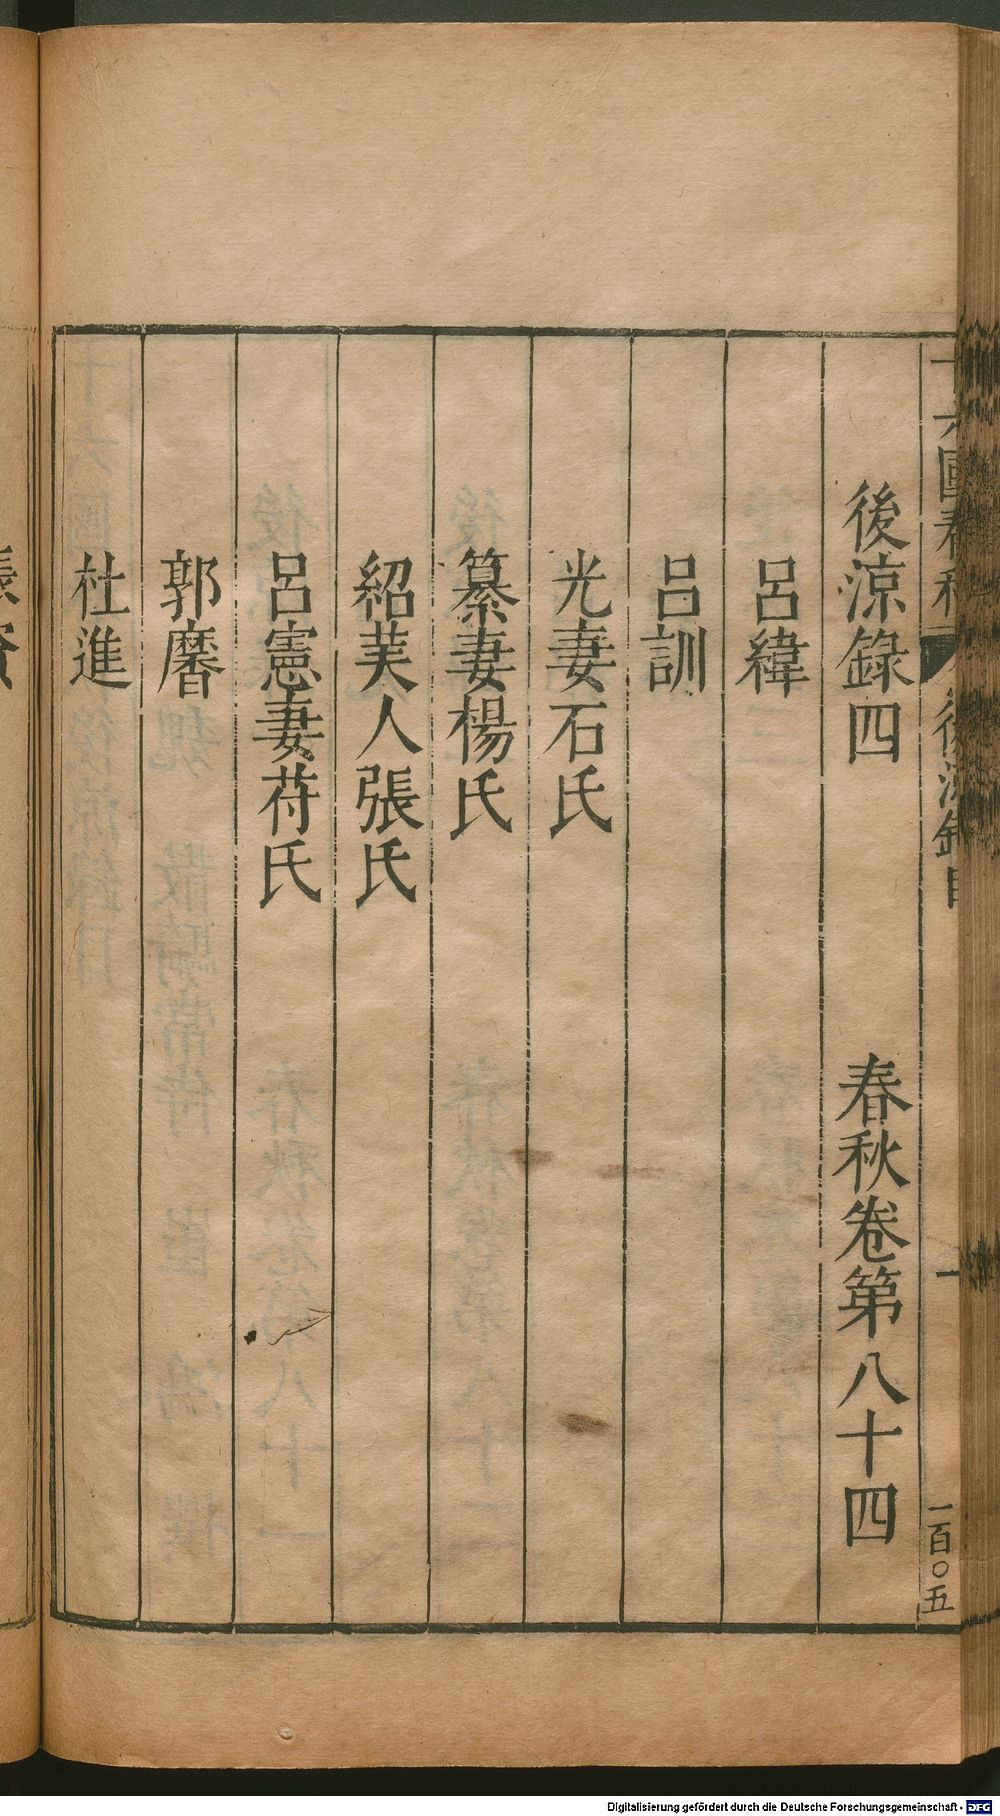 十六國春秋 後涼錄目 一 一百〇五
後涼錄四 春秋卷第八十四
呂緯
呂訓
光妻石氏
纂妻楊氏
紹美人張氏
呂憲妻苻氏
郭黁
杜進
Digitalisierung gefördert durch die Deutsche Forschungsgemeinschaft - DFG